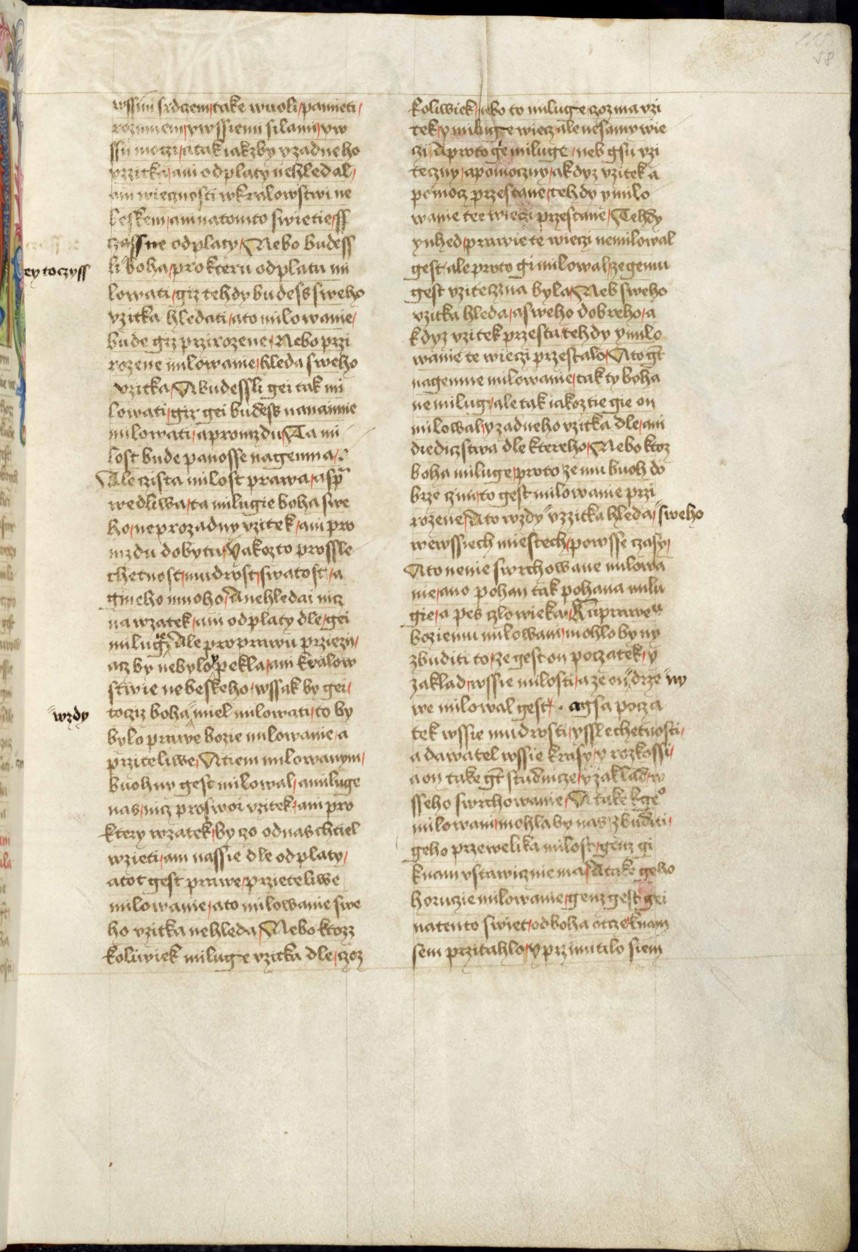 wssim srdczem, take wuoli, pamieti,
rozumem, y wssiemi silami, y w
ssii moczi, a tak iakzby vzadneho
vzzitka, ani odplaty nehledal,
ani wiecznosti w kralowstwi ne
beskem, ani na tomto swietie, ff
czassne odplaty, Nebo budess
li boha, pro kteru odplatu mi
lowati, giz tehdy budess sweho
vzitka hledati, a to milowanie,
bude giz przirozene, Nebo przi
rozene milowanie, hleda sweho
vzitka, A budessli gei tak mi
lowati, giz gei budess nanaimie
milowati, a promzdu, Ta mi
lost bude panosse nagemna,
Ale czista milost prawa, a spra
wedliwa, ta milugie boha swe
ho, ne prozadny vzitek, ani pro
mzdu dobytu, Yakozto prossle
chetnost, mudrost, swatost, a
gineho mnoho, A nehledai nicz
na wzatek, ani odplaty dle, gei
milug, Ale pro prawu prziezn,
acz by nebylo pekla, ani kralow
stwie nebeskeho, wssak by gei,
tocziz boha, miel milowati, to by
bylo prawe bozie milowanie, a
prziteliwe, A tiem milowanym,
buohny gest milowal, a miluge
nas, nicz proswoi vzitek, ani pro
ktery wzatek, by czo od nas chtiel
wzieti, ani nassie dle odplaty,
a tot gest prawe, przieteliwe
milowanie, a to milowanie swe
ho vzitka nehleda, Nebo ktozz
koliwiek miluge vzitka dle, czoz
ey toczyss
wzdy
koliwiek, nebo to miluge czoz ma vzi
tek, y miluge wiecz ale ne samu wie
czi, A proto ge miluge, neb gsu vzi
teczny, a pomoczny, a kdyz vzitek a
pomocz przestane, tehdy y milo
wanie tee wieczi przestane, Tehdy
y nhed prawie te wieczi nemilowal
gest, ale proto gi milowal, ze gemu
gest vziteczna byla, Neb sweho
vzitka hleda, a sweho dobreho, a
kdyz vzitek przesta, tehdy y milo
wanie te wieczi przestalo, A to gt
nagemne milowanie, tak ty boha
ne milug, ale tak iakoz tie gie on
milowal, vzadneho vzitka dle, ani
diediczstwa dle ktereho, Nebo ktoz
boha miluge, proto ze mu buoh do
brze czini, to gest milowanie przi
rozene, A to wzdy vzzitka hleda, sweho
we wssiech miestech, powsse czasy,
A to nenie swrchowane milowa
nie, ano pohan tak pohana milu
gie, a pes czlowieka, K uprawe
boziemu milowani, mohlo by ny
zbuditi to, ze gest on poczatek, y
zaklad, wssie milosti, a ze on drzewy
we milowal gest, a gsa pocza
tek wssie mudrosti, y sslechetnosti,
a dawatel wssie krasy, y rozkossi,
a on take gt studnicze, y zaklad, w
sseho swrchowanie, A take k ge°
milowani, mohla by nas zbuditi,
geho przewelika milost, genz gi
k nam vstawicznie ma, A take geho
horuczie milowanie, genz gest gei
na tento swiet, od boha otcze k nam
sem przitahlo, y przinutilo siem